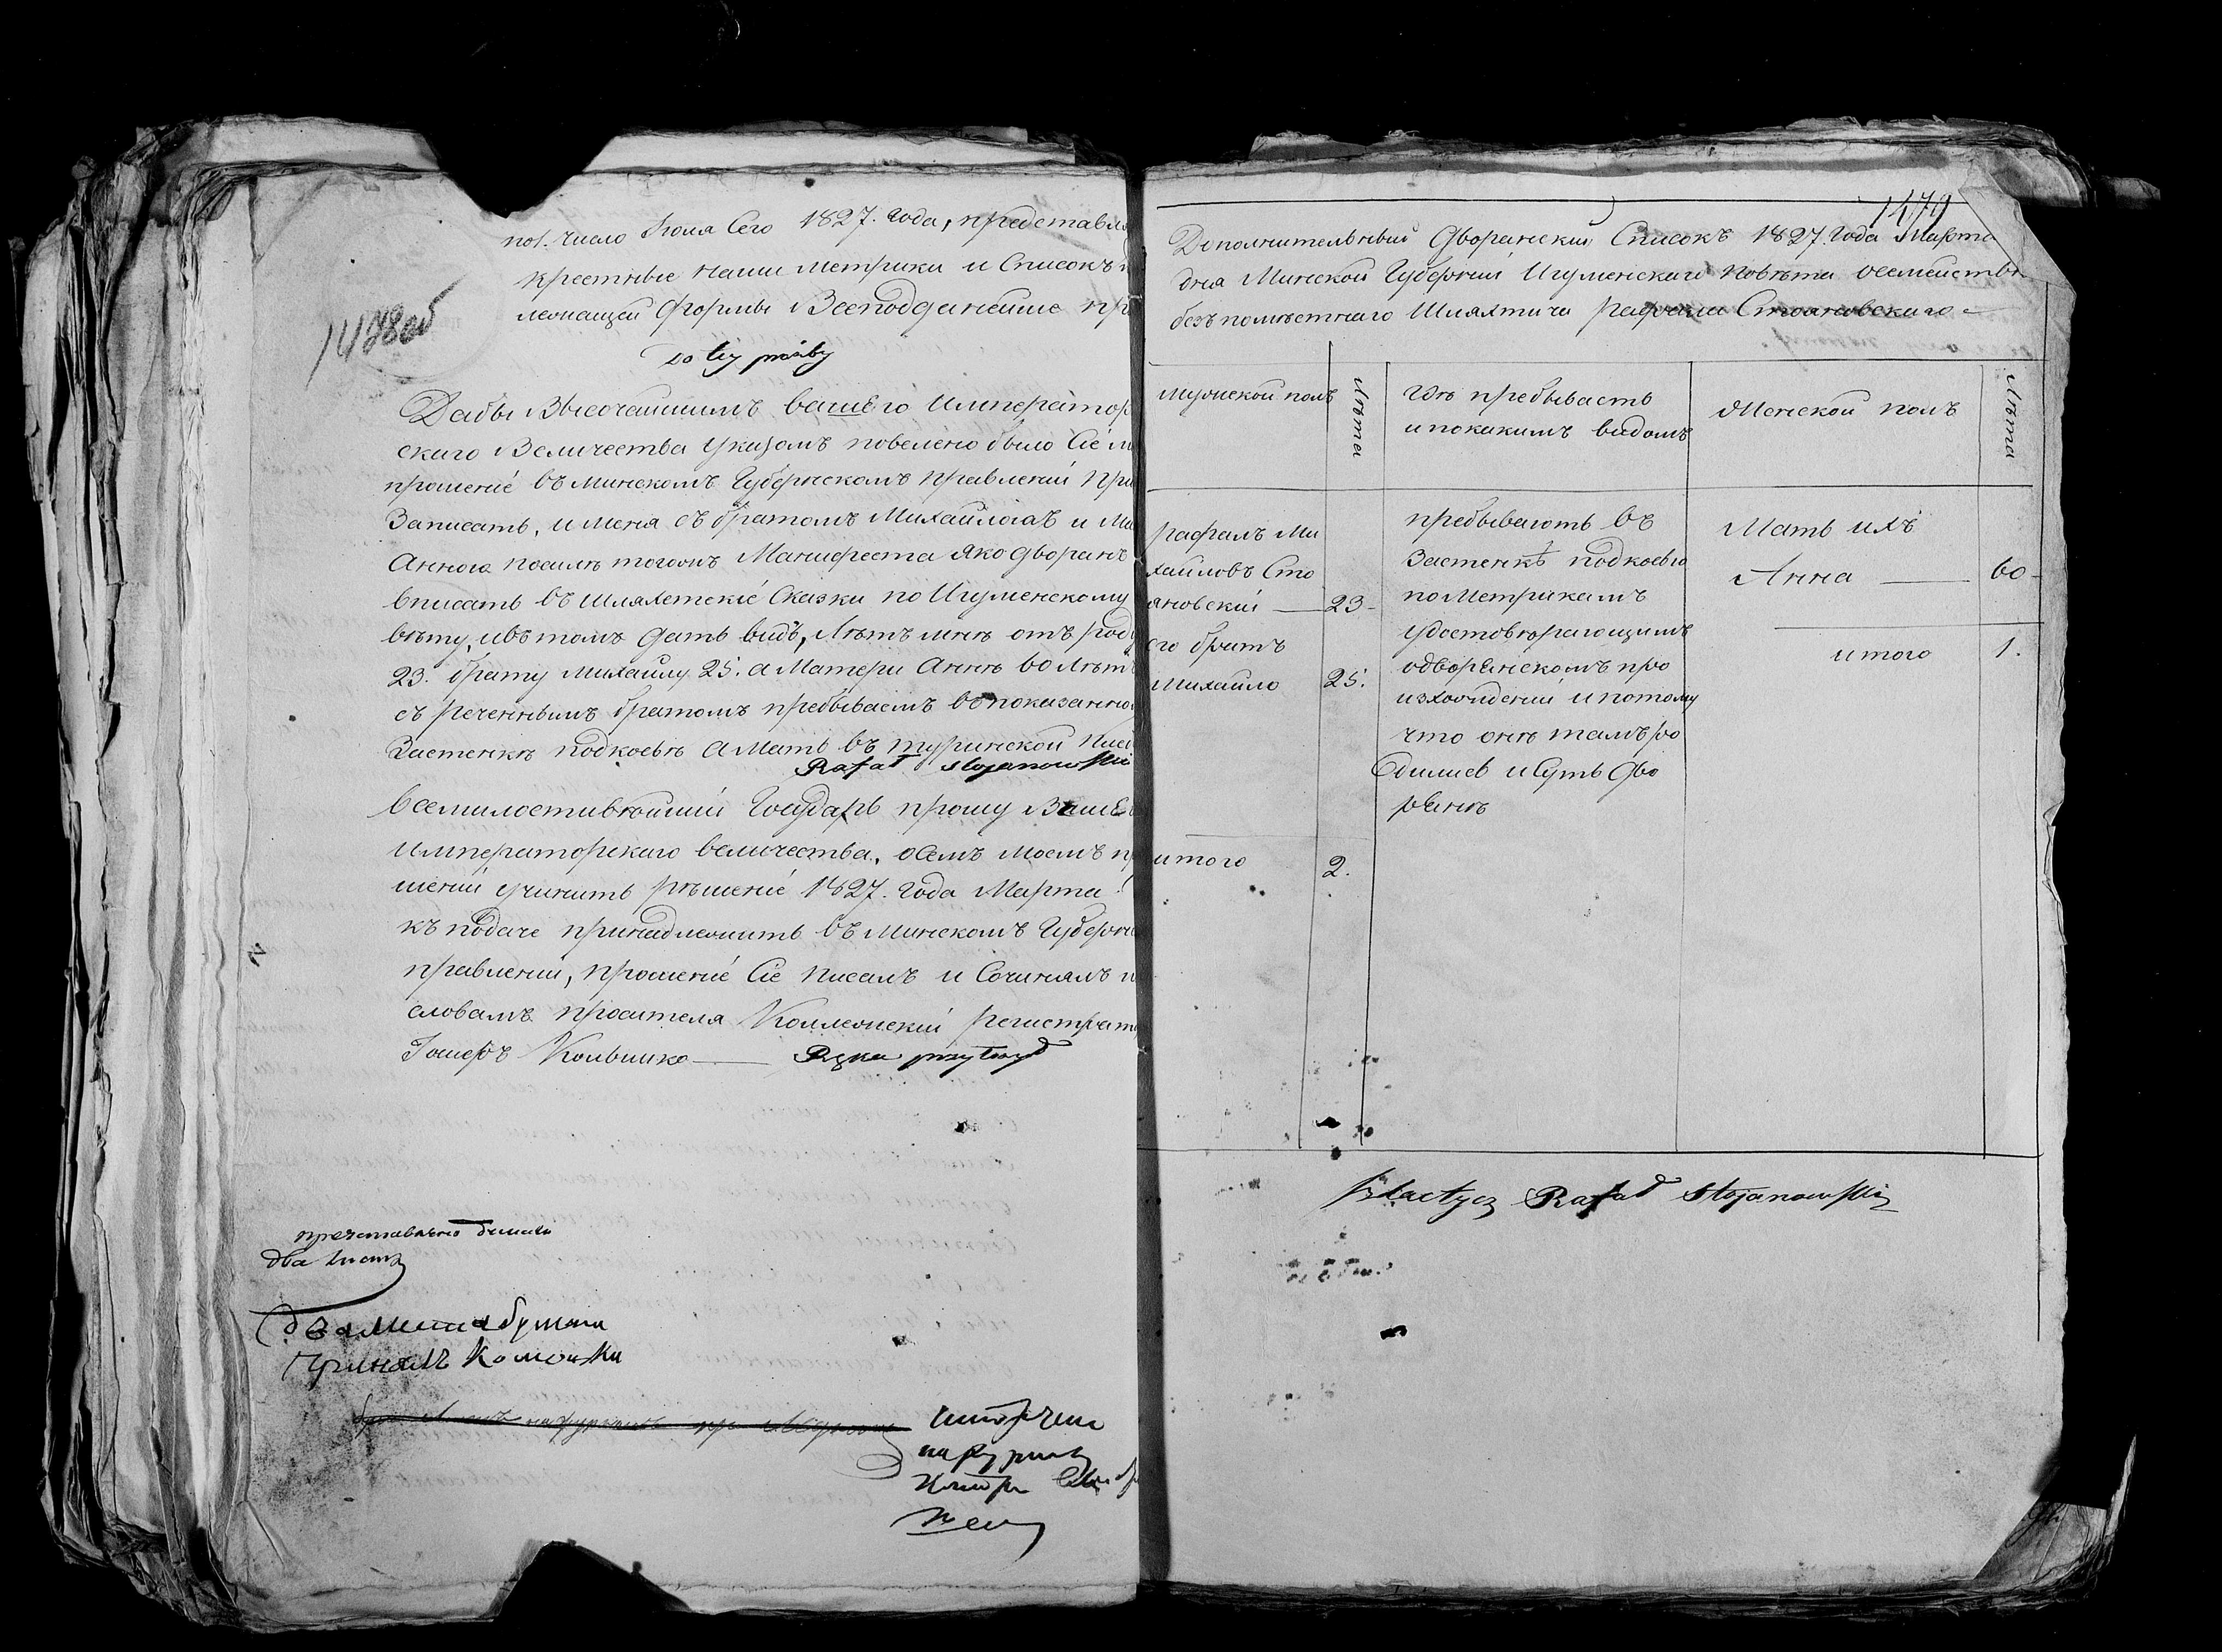 1478об
по 1. число Июля Сего 1827. года, представля
крестные наши метрики и Списокъ
лежащей формы Всеподданейше пр
do tey prośby
Дабы Высочайшимъ вашего Император
скаго Величества указомъ повелено было Сіе м
прошеніе въ Минскомъ Губернскомъ правленіи При
Записать, и меня съ братомъ Михайломъ и Ма
Анною посилѣ того Манифеста яко дворянъ
вписать въ шляхетскіе Сказки по Игуменскому
вѣту, ивътомъ дать видъ, Лѣтъ мнѣ отъ роду
23. брату Михайлу 25. а Матери Аннѣ 60 лѣтъ
съ реченнымъ братомъ пребываемъ въ показанно
Застенкѣ подкосьѣ а Мать въ туринской
Rafał Stojanowski
Всемилостивѣйшій Государь прошу Вашего
Императорскаго величества, осемъ моемъ пр
шеніи учинить рѣшеніе 1827. года Марта
къ подаче принадлежитъ въ Минскомъ Губернс
правленіи, прошеніе Сіе писалъ и Сочинялъ
словамъ просителя Коллежскій регистрат
Іосифъ
Rękę przyłożył
два листа
два листа бумаги
1479
Дополнительный Дворянскій Списокъ 1827 Года Марта
дня Минской Губерніи Игуменскаго повѣта осемействѣ
безъпомѣстнаго Шляхтича Рафала Стояновскаго
мужеской полъ
Лѣта
гдѣ пребываетъ
ипокакимъ видомъ
Женской полъ
Лѣта
рафалъ Ми
хайловъ Сто
яновскій — 23
его братъ
Михайло 25.
итого 2.
пребываютъ въ
Застенкѣ подкосьѣ
по Метрикамъ
удостовѣряющимъ
одворянскомъ про
изхожденіи ипотому
что онѣ тамъ ро
дились и Суть Дво
рянѣ
Мать ихъ
Анна — 60
итого 1.
Szlachcyc Rafał Stojanowski